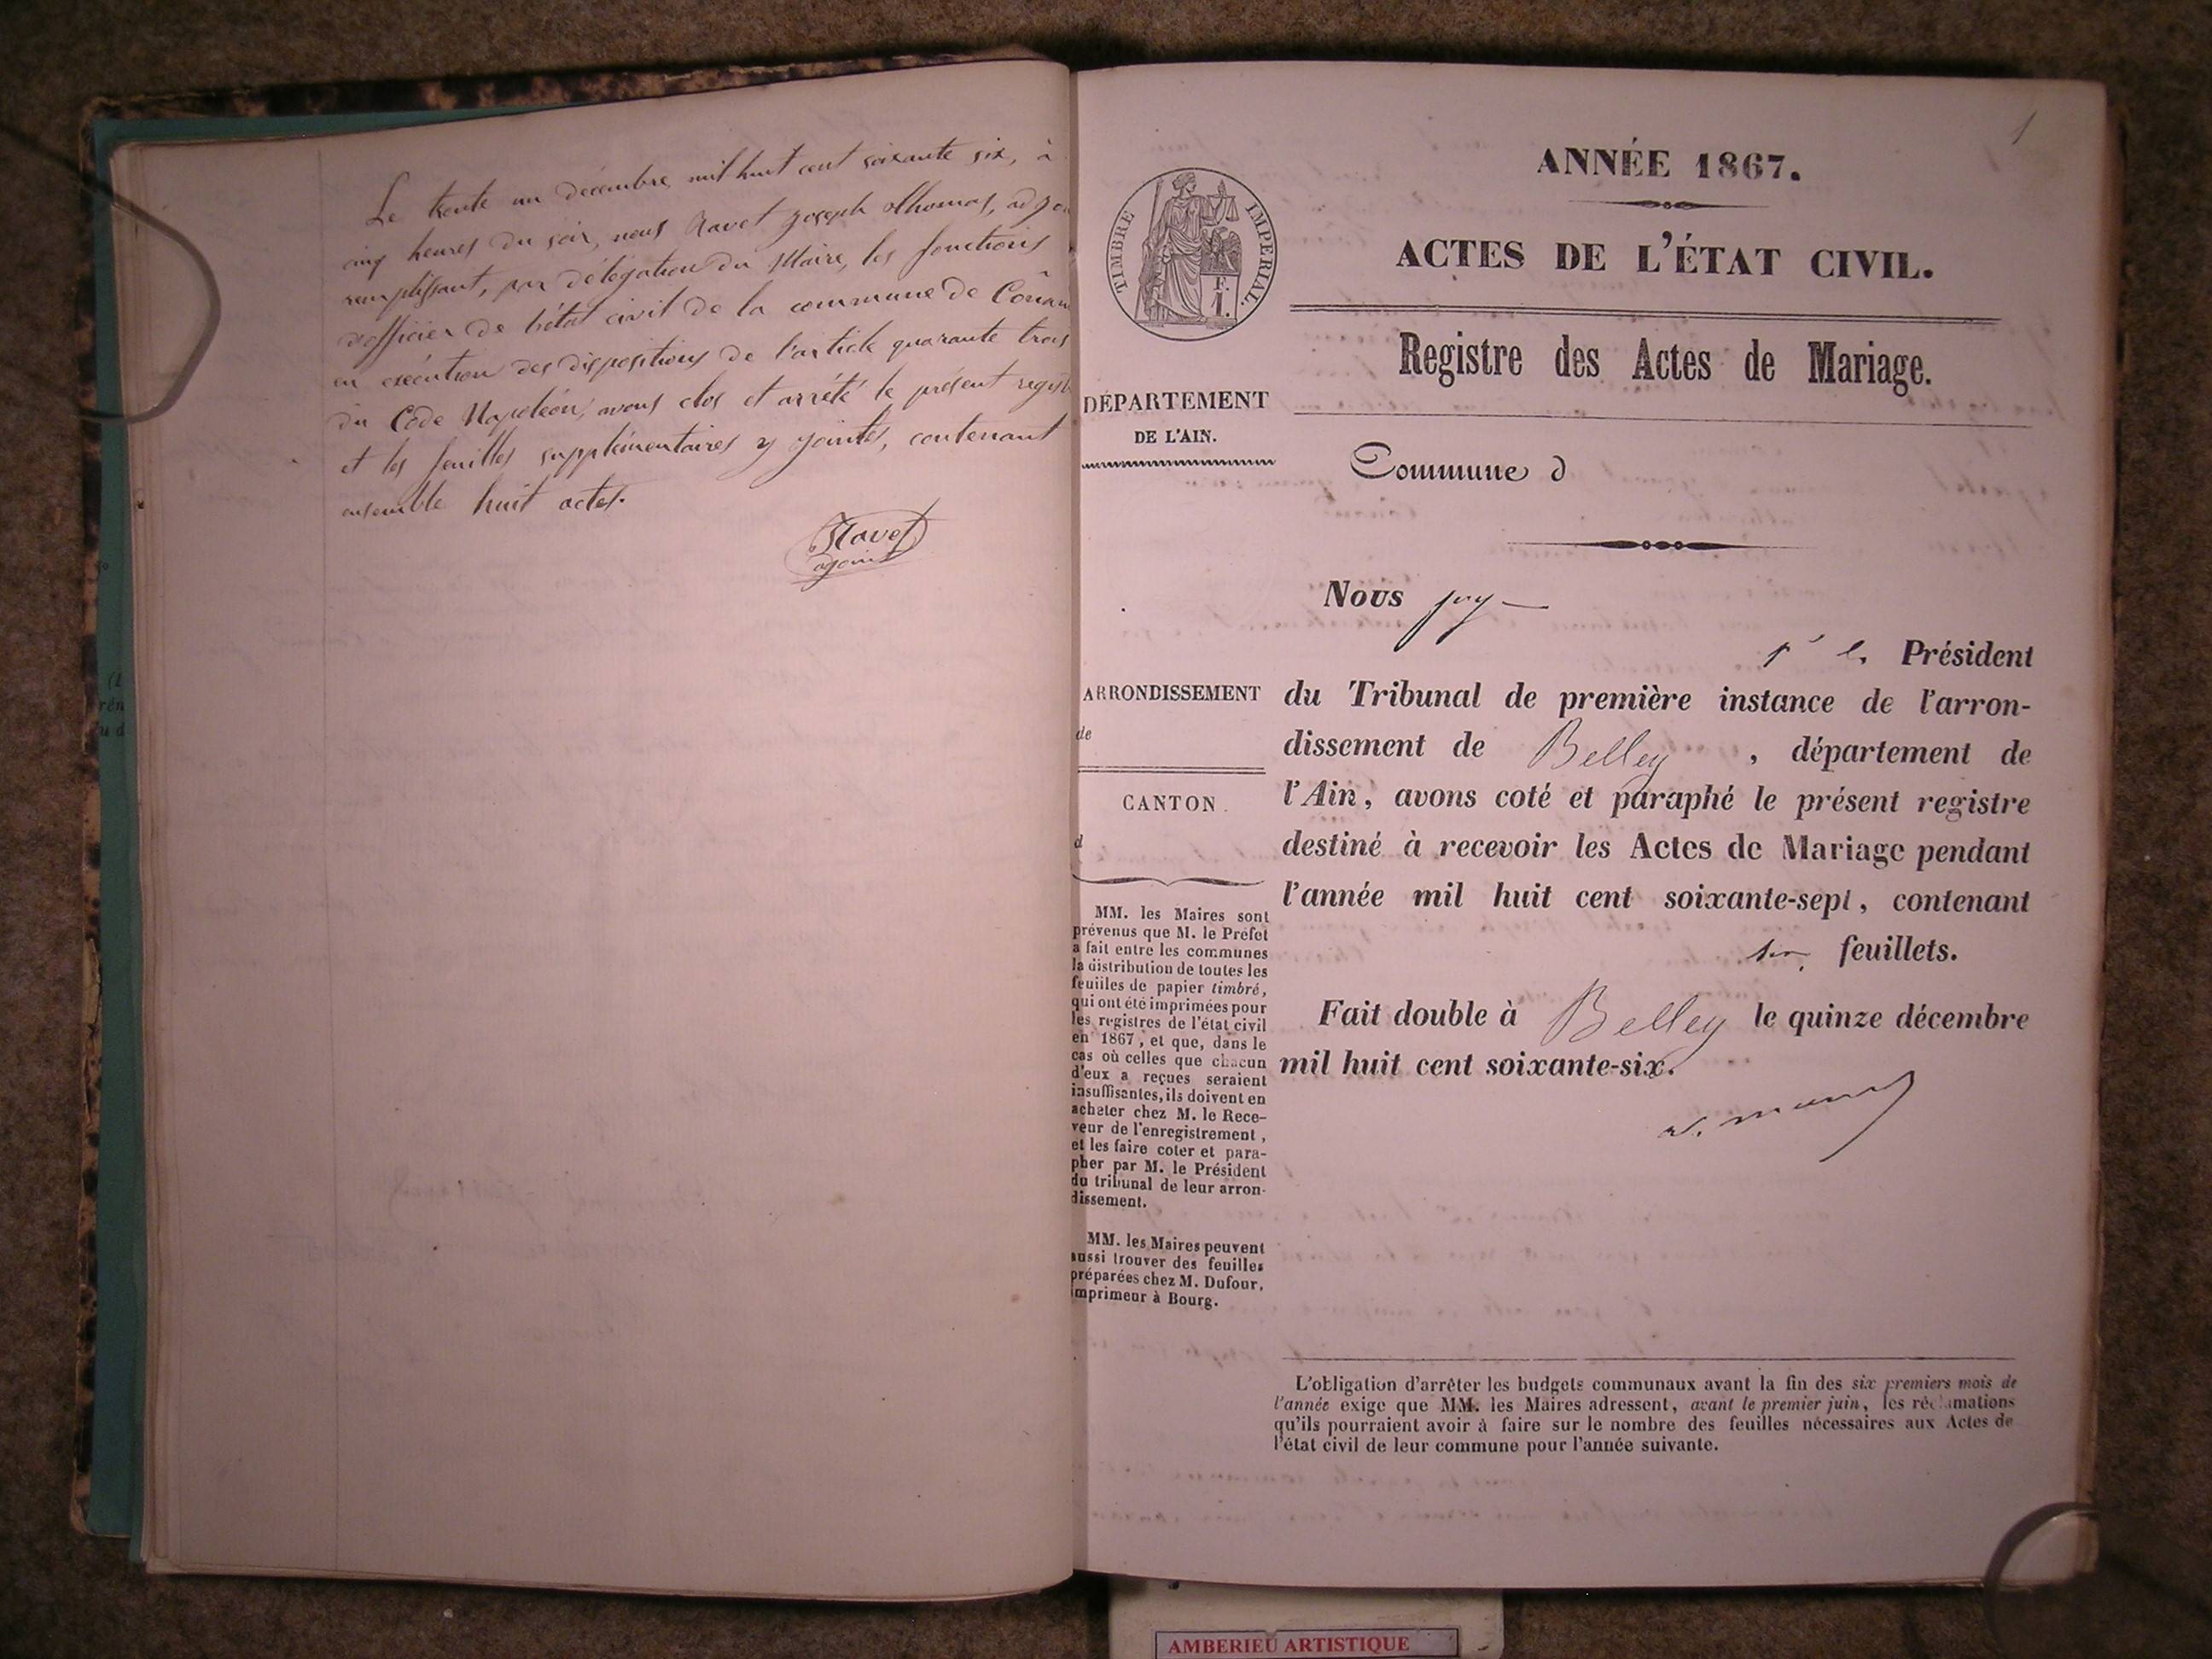 Le trente un décembre mil huit cent soixante six, à
cinq heures du soir, nous Ravet Joseph Thomas, adjoi
remplissant, par délégation du Maire, les fonctions
d'officier de l'état civil de la commune de
en exécution des dispositions de l'article quarante trois
du Code Napoléon, avons clos et arrêté le présent regist
et les feuilles supplémentaires y jointes, contenant
ensemble huit actes.
Ravet
adjoint
1
ANNÉE 1867.
ACTES DE L'ÉTAT CIVIL.
Registre des Actes de Mariage.
TIMBRE IMPERIAL.
F.
1.
DÉPARTEMENT
DE L'AIN.
Commune d
Nous
Président
ARRONDISSEMENT
de
CANTON
d
du Tribunal de première instance de l'arron-
dissement de Belley , département de
l'Ain, avons coté et paraphé le présent registre
destiné à recevoir les Actes de Mariage pendant
l'année mil huit cent soixante-sept, contenant
six feuillets.
Fait double à Belley le quinze décembre
mil huit cent soixante-six.
MM. les Maires sont
prévenus que M. le Préfet
a fait entre les communes
la distribution de toutes les
feuilles de papier timbré,
qui ont été imprimées pour
les registres de l'état civil
en 1867, et que, dans le
cas où celles que chacun
d'eux a reçues seraient
insuffisantes, ils doivent en
acheter chez M. le Rece-
veur de l'enregistrement,
et les faire coter et para-
pher par M. le Président
du tribunal de leur arron-
dissement.
MM. les Maires peuvent
aussi trouver des feuilles
préparées chez M. Dufour,
imprimeur à Bourg.
L'obligation d'arrêter les budgets communaux avant la fin des six premiers mois de
l'année exige que MM. les Maires adressent, avant le premier juin, les réclamations
qu'ils pourraient avoir à faire sur le nombre des feuilles nécessaires aux Actes de
l'état civil de leur commune pour l'année suivante.
AMBERIEU ARTISTIQUE